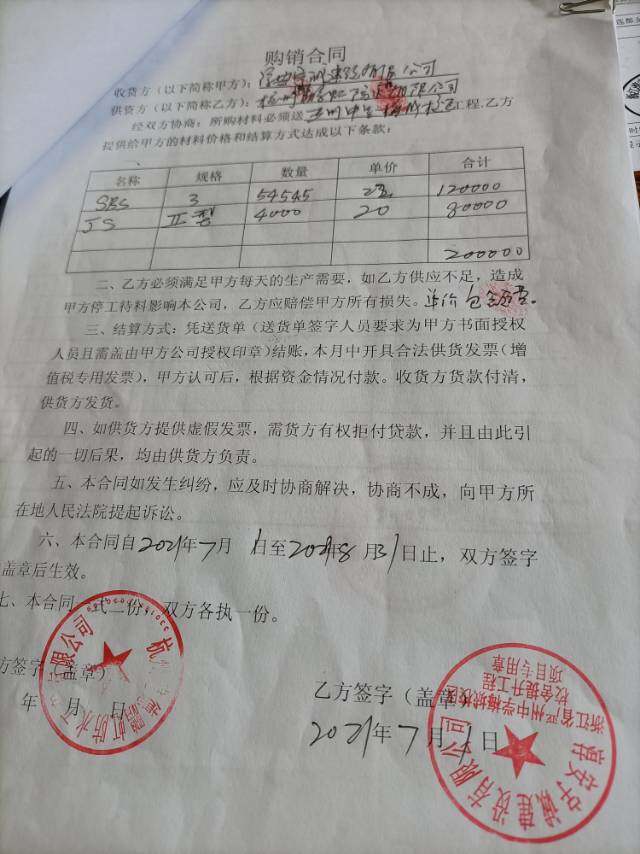 购销合同
收货方（以下简称甲方）：有限公司
供货方（以下简称乙方）：杭州有限公司
经双方协商：所购材料必须送 工程,乙方
提供给甲方的材料价格和结算方式达成以下条款：
名称 规格 数量 单价 合计
SBS 3 54545 120000
JS II型 4000 20 80000
200000
二、乙方必须满足甲方每天的生产需要，如乙方供应不足，造成
甲方停工待料影响本公司，乙方应赔偿甲方所有损失。单价包含
三、结算方式：凭送货单（送货单签字人员要求为甲方书面授权
人员且需盖由甲方公司授权印章）结账，本月中开具合法供货发票（增
值税专用发票），甲方认可后，根据资金情况付款。收货方货款付清，
供货方发货。
四、如供货方提供虚假发票，需货方有权拒付贷款，并且由此引
起的一切后果，均由供货方负责。
五、本合同如发生纠纷，应及时协商解决，协商不成，向甲方所
在地人民法院提起诉讼。
六、本合同自2021年7月1日至2021年8月31日止，双方签字
盖章后生效。
七、本合同一式二份，双方各执一份。
方签字（盖章）
年 月 日
杭 防水 有限公司
乙方签字（盖章）
2021年7月1日
建设有限公司
浙江省严州中学梅城校区
校舍提升工程
项目专用章